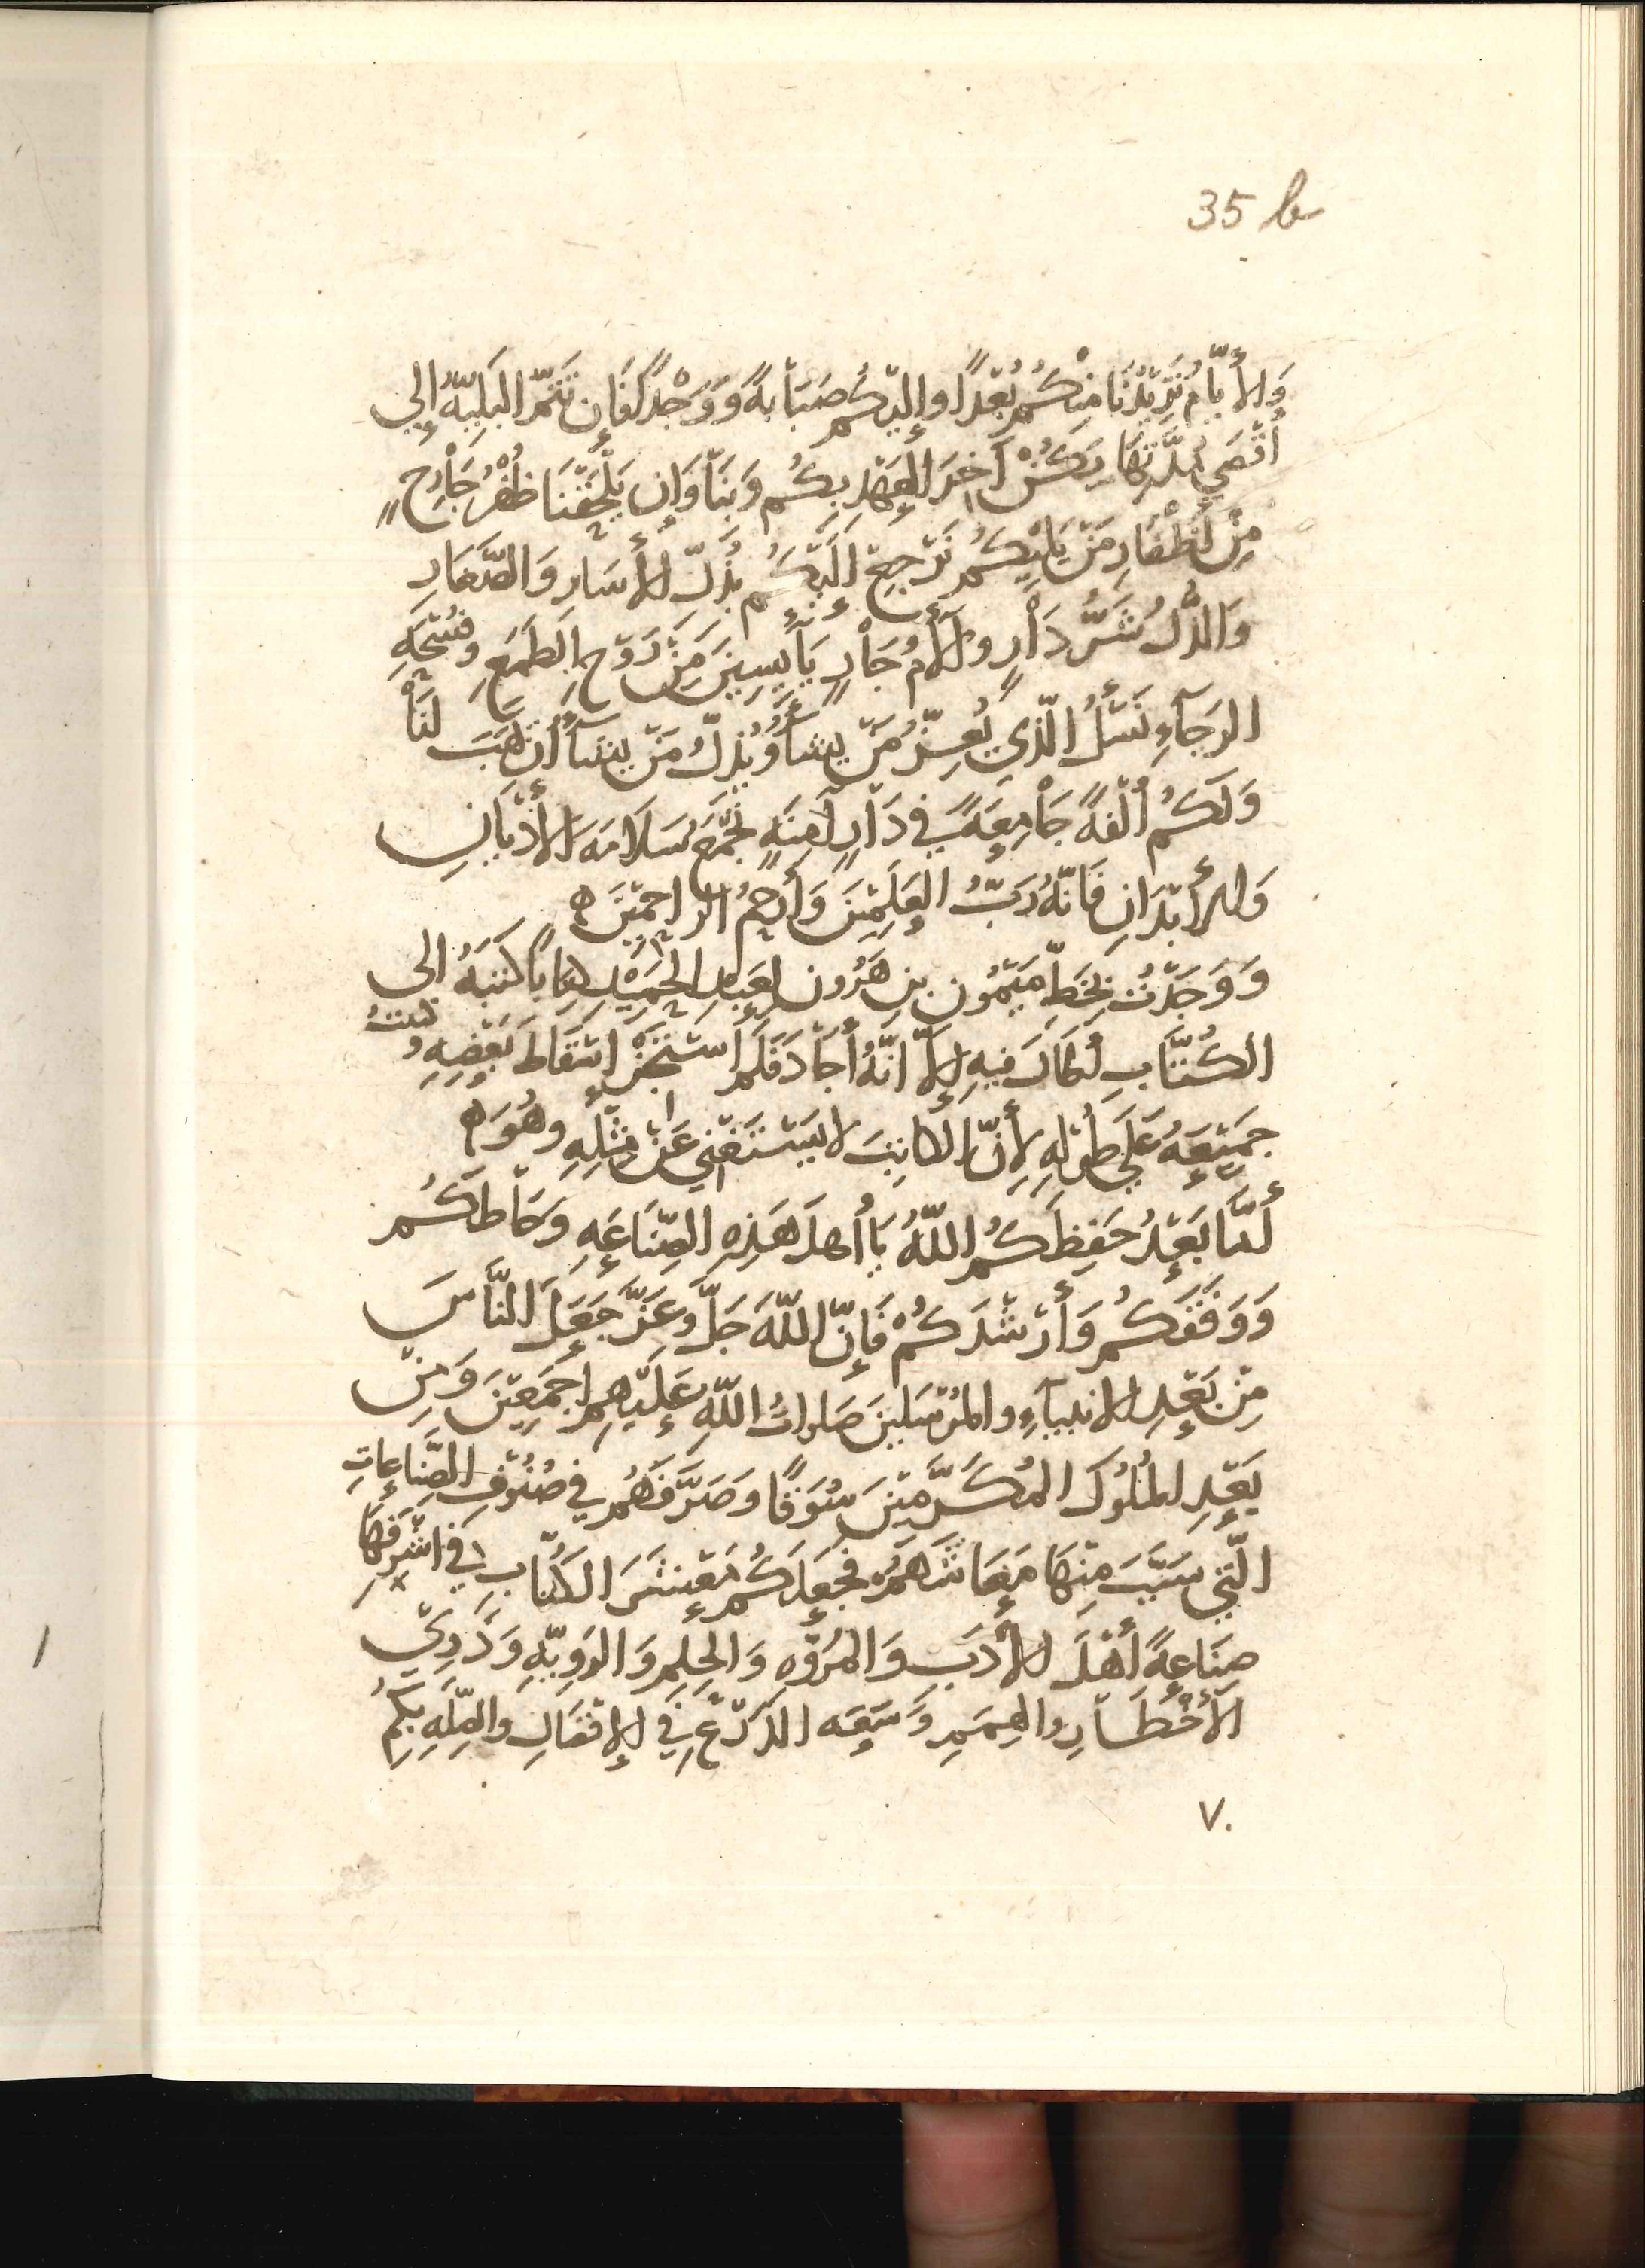 35 b
وَالأَيَّامُ تَزِيْدُنَا مِنْكُم بُعْدًا وإِلَيْكُم صَبَابَةً وَوَجْدًا فَإِن تَتِمَّ البَلِيَّةُ إِلي
أَقْصَي مُدَّتِهَا يَكُنْ آخِرَ العَهْدِ بِكُم وَبِنَا وَإِن يَلْحَقْنَا ظُفْرٌ جَارِحٌ
مِنْ أَظْفَارِ مَنْ يَلِيْكُم نَرْجِعْ إِلَيْكُم بِذُلِّ الأَسَارِ وَالصَّغَارِ
وَالذُّلُ شَرُّ دَارٍ وأَلأَمُ جَارٍ يَايِسِينَ مِنْ رَوْحِ الطَمَعِ وفُسْحَةِ
الرَجَآءِ نَسْئَلُ الَّذِي يُعِزُّ مَنْ يشَآءُ وَيُذِلُّ مَنْ يشَآءُ أَن يَهَبَ لَنَا
وَلَكُم أُلْفَةً جَامِعَةً فِي دَارٍ آمِنَةٍ تَجْمَع سَلَامَة الأَدْيَانِ
وَالأَبْدَانِ فَانَّهُ رَبُّ العَلَمِيْنَ وَأَرْحَمُ الرَاحِمِيْنَ ه
وَوَجَدْتُ بِخَطِّ مَيْمُون بن هَرُون لِعَبْدِ الحَمِيْدِ كِتَابًا كَتَبَهُ الى
الكُتَّابِ أَطَالَ فِيهِ إِلاَّ انَّهُ أَجَادَ فَلَم أَسْتَجِزْ إِسْقَاطَ بَعْضِهِ وكتبتُ
جَمِيْعَهُ عَلَي طُوْلِهِ لأَنَّ الكَاتِبَ لا يَسْتَغْنِي عَنْ مِثْلِهِ وهُوَ ه
أَمَّا بَعْدُ حَفِظَكُم اللّهُ يَا أهلَ هَذِهِ الصِّنَاعَةِ وحَاطَكُم
وَوَفَّقَكُم وَأَرْشَدَكُمْ فَإِنَّ اللّهَ جَلَّ وعَزَّ جَعَلَ النَّاسَ
مِنْ بَعْدِ الانبيآءِ والمُرْسَلينَ صَلواتُ اللّهِ عَلَيْهِم اجْمَعِيْنَ وَمِنْ
بَعْدِ المُلُوْكَ المُكَرَّمِيْنَ سُوَقًا وصَرَّفَهُم فِي صُنُوْفِ الصِّنَاعاتِ
الَّتِي سَبَّبَ مِنْهَا مَعَاشَهُمْ فجَعَلَكُم مَعْشَرَ الكُتَّابِ فِي اشْرَفِهَا
صِنَاعةً أَهْلَ الأَدَبِ وَالمُرُوّهِ وَالحِلْمِ وَالرَوِيّةِ وَذَوِي
الأَخْطَارِ والهِمَمِ وَسَعَه الذَرْعِ فِي الإِفْضَالِ والصِّلَهِ بِكُمْ
٧٠